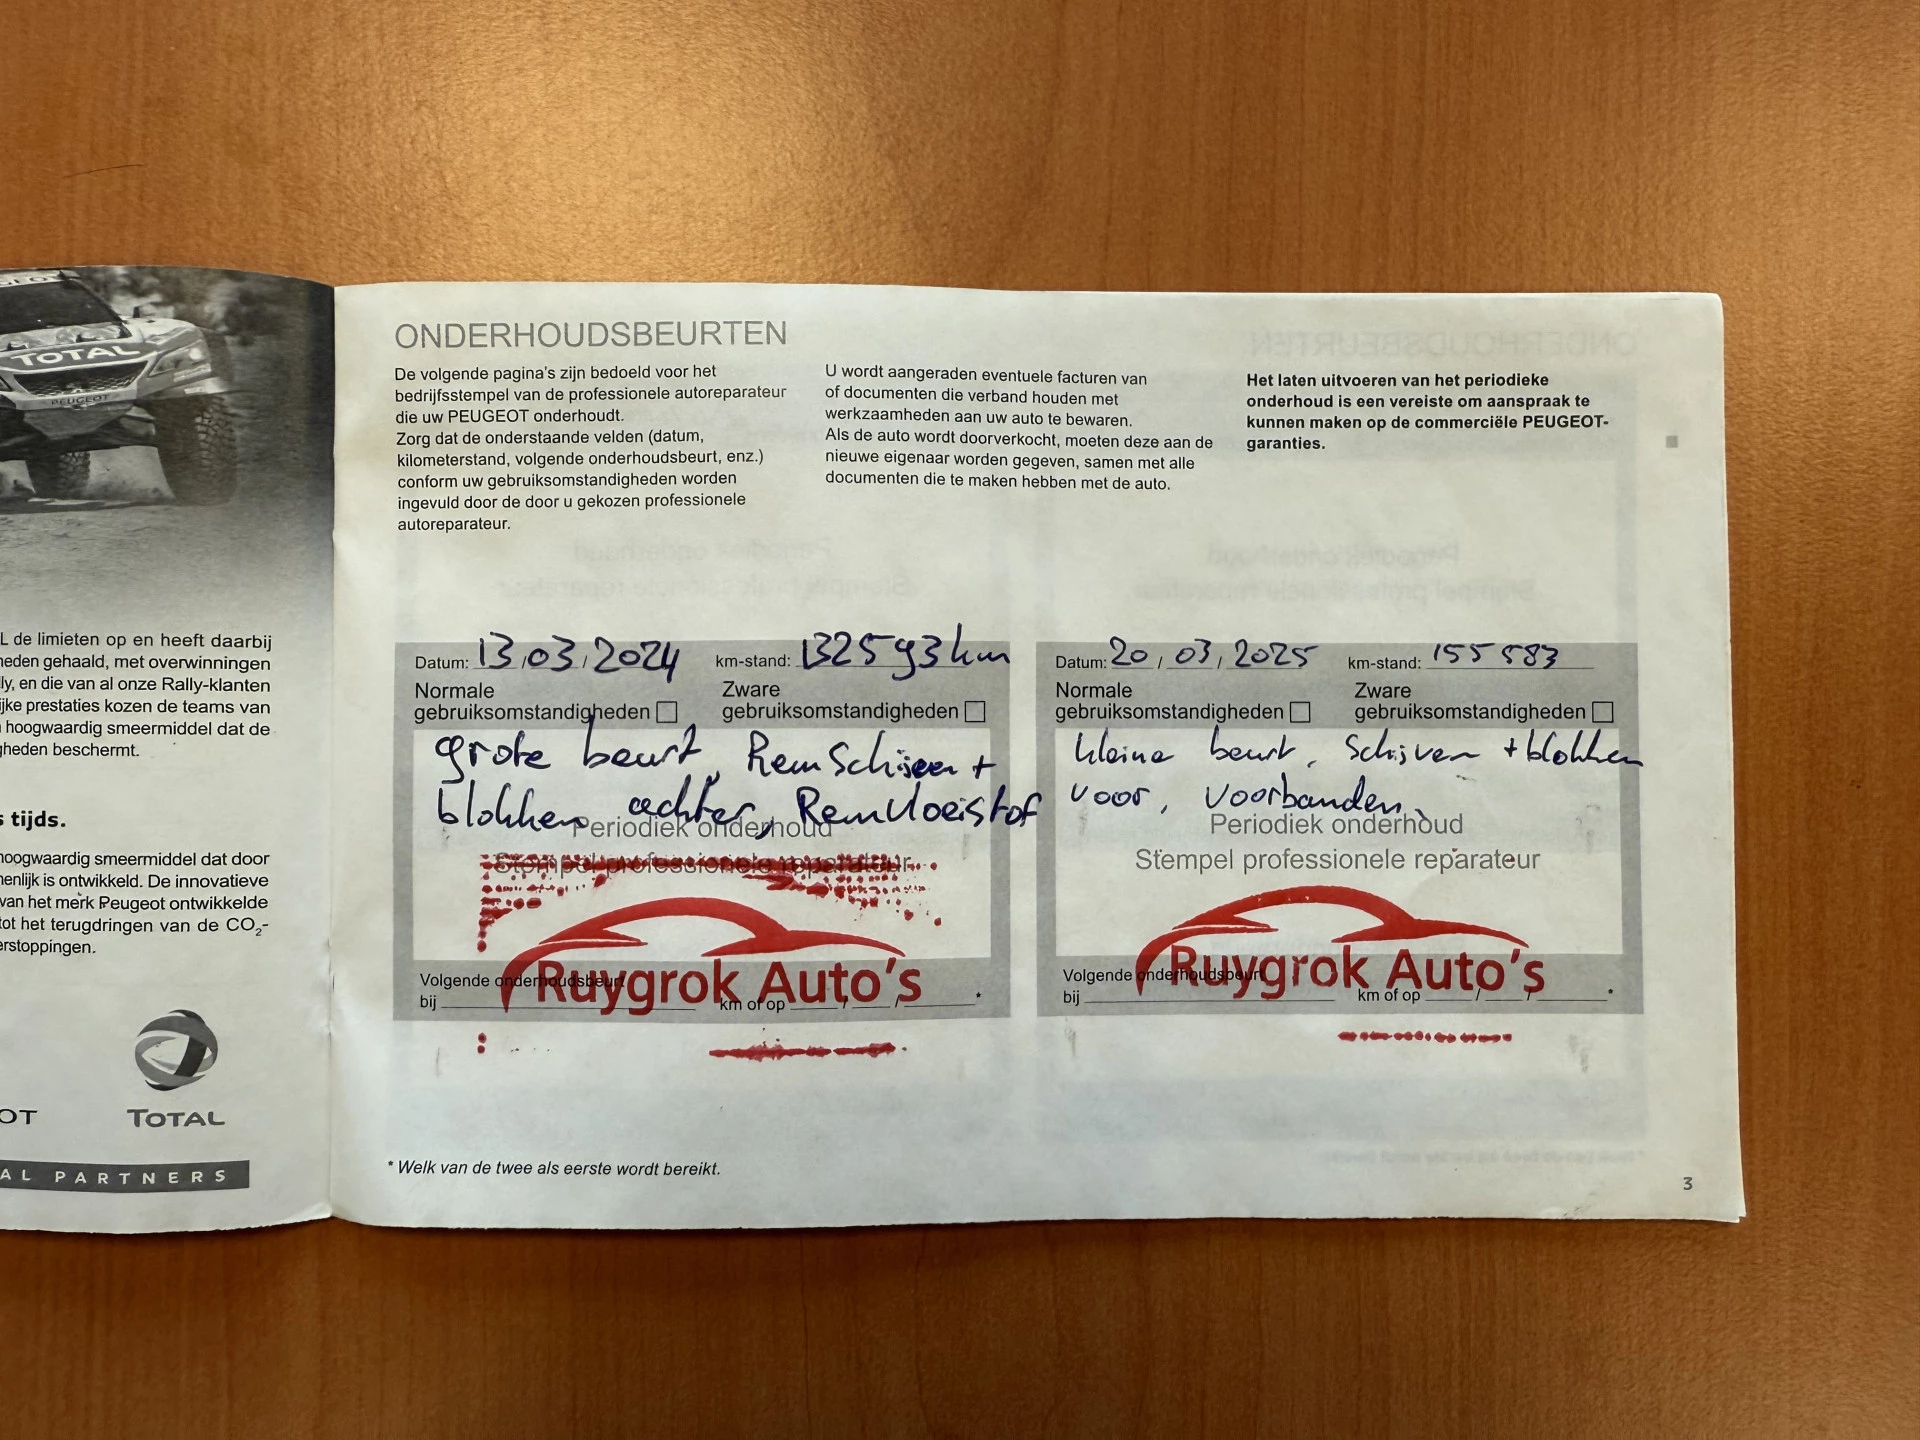 TOTAL
PEUGEOT
L de limieten op en heeft daarbij
heden gehaald, met overwinningen
lly, en die van al onze Rally-klanten
ijke prestaties kozen de teams van
hoogwaardig smeermiddel dat de
gheden beschermt.
s tijds.
hoogwaardig smeermiddel dat door
nenlijk is ontwikkeld. De innovatieve
van het merk Peugeot ontwikkelde
tot het terugdringen van de CO₂-
erstoppingen.
OT
TOTAL
AL PARTNERS
ONDERHOUDSBEURTEN
De volgende pagina's zijn bedoeld voor het
bedrijfsstempel van de professionele autoreparateur
die uw PEUGEOT onderhoudt.
Zorg dat de onderstaande velden (datum,
kilometerstand, volgende onderhoudsbeurt, enz.)
conform uw gebruiksomstandigheden worden
ingevuld door de door u gekozen professionele
autoreparateur.
U wordt aangeraden eventuele facturen van
of documenten die verband houden met
werkzaamheden aan uw auto te bewaren.
Als de auto wordt doorverkocht, moeten deze aan de
nieuwe eigenaar worden gegeven, samen met alle
documenten die te maken hebben met de auto.
Het laten uitvoeren van het periodieke
onderhoud is een vereiste om aanspraak te
kunnen maken op de commerciële PEUGEOT-
garanties.
Datum: 13/03/2024 km-stand: 132593 km
Normale Zware
gebruiksomstandigheden gebruiksomstandigheden
grote beurt, Remschijven +
blokken achter, Remvloeistof
Periodiek onderhoud
Stempel professionele reparateur
Ruygrok Auto's
Volgende onderhoudsbeurt
bij km of op / / *
Datum: 20/03/2025 km-stand: 155583
Normale Zware
gebruiksomstandigheden gebruiksomstandigheden
kleine beurt, Schijven + blokken
voor, voorbanden,
Periodiek onderhoud
Stempel professionele reparateur
Ruygrok Auto's
Volgende onderhoudsbeurt
bij km of op / / *
* Welk van de twee als eerste wordt bereikt.
3